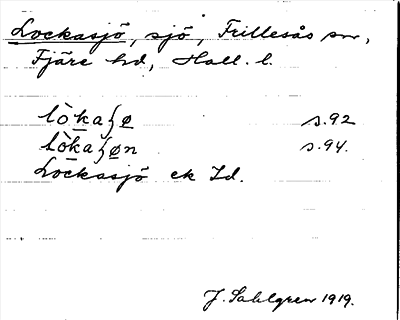 Lockasjö, sjö, Frillesås sn,
Fjäre hd, Hall. l.
lòkaʃø s.92
lòkaʃøn s.94.
Lockasjö ek Id.
J. Sahlgren 1919.